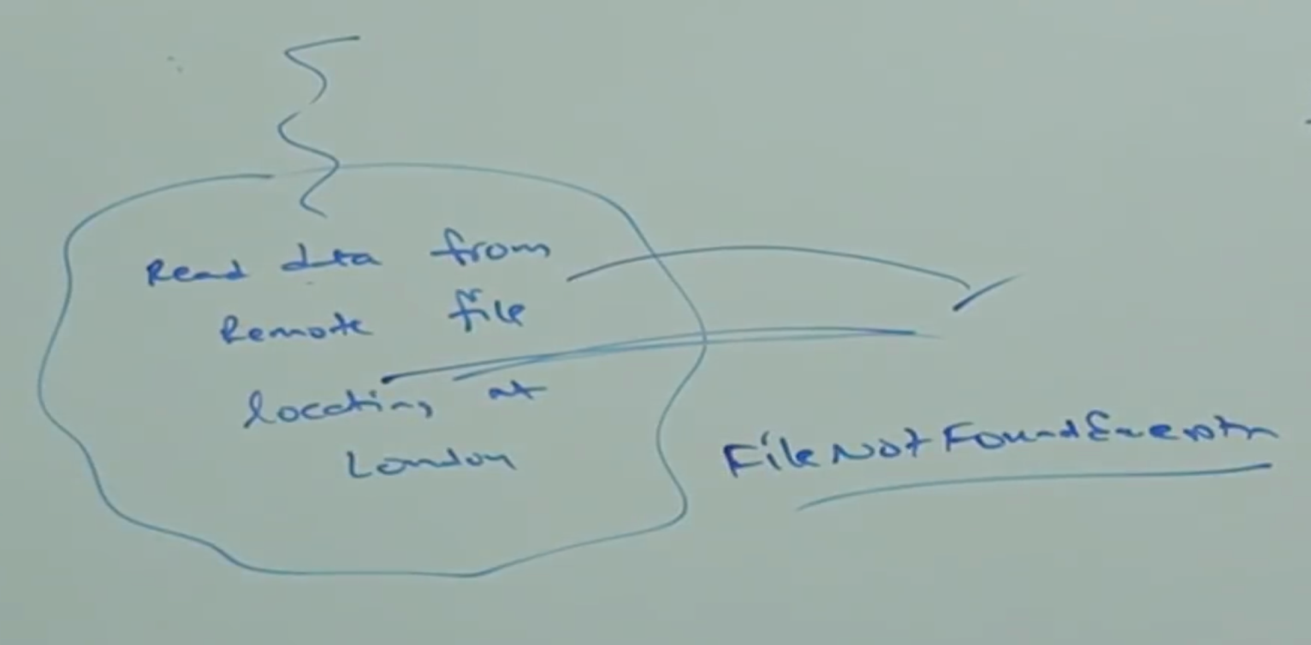 Read data from
Remote file
locating at
London
FileNotFoundException